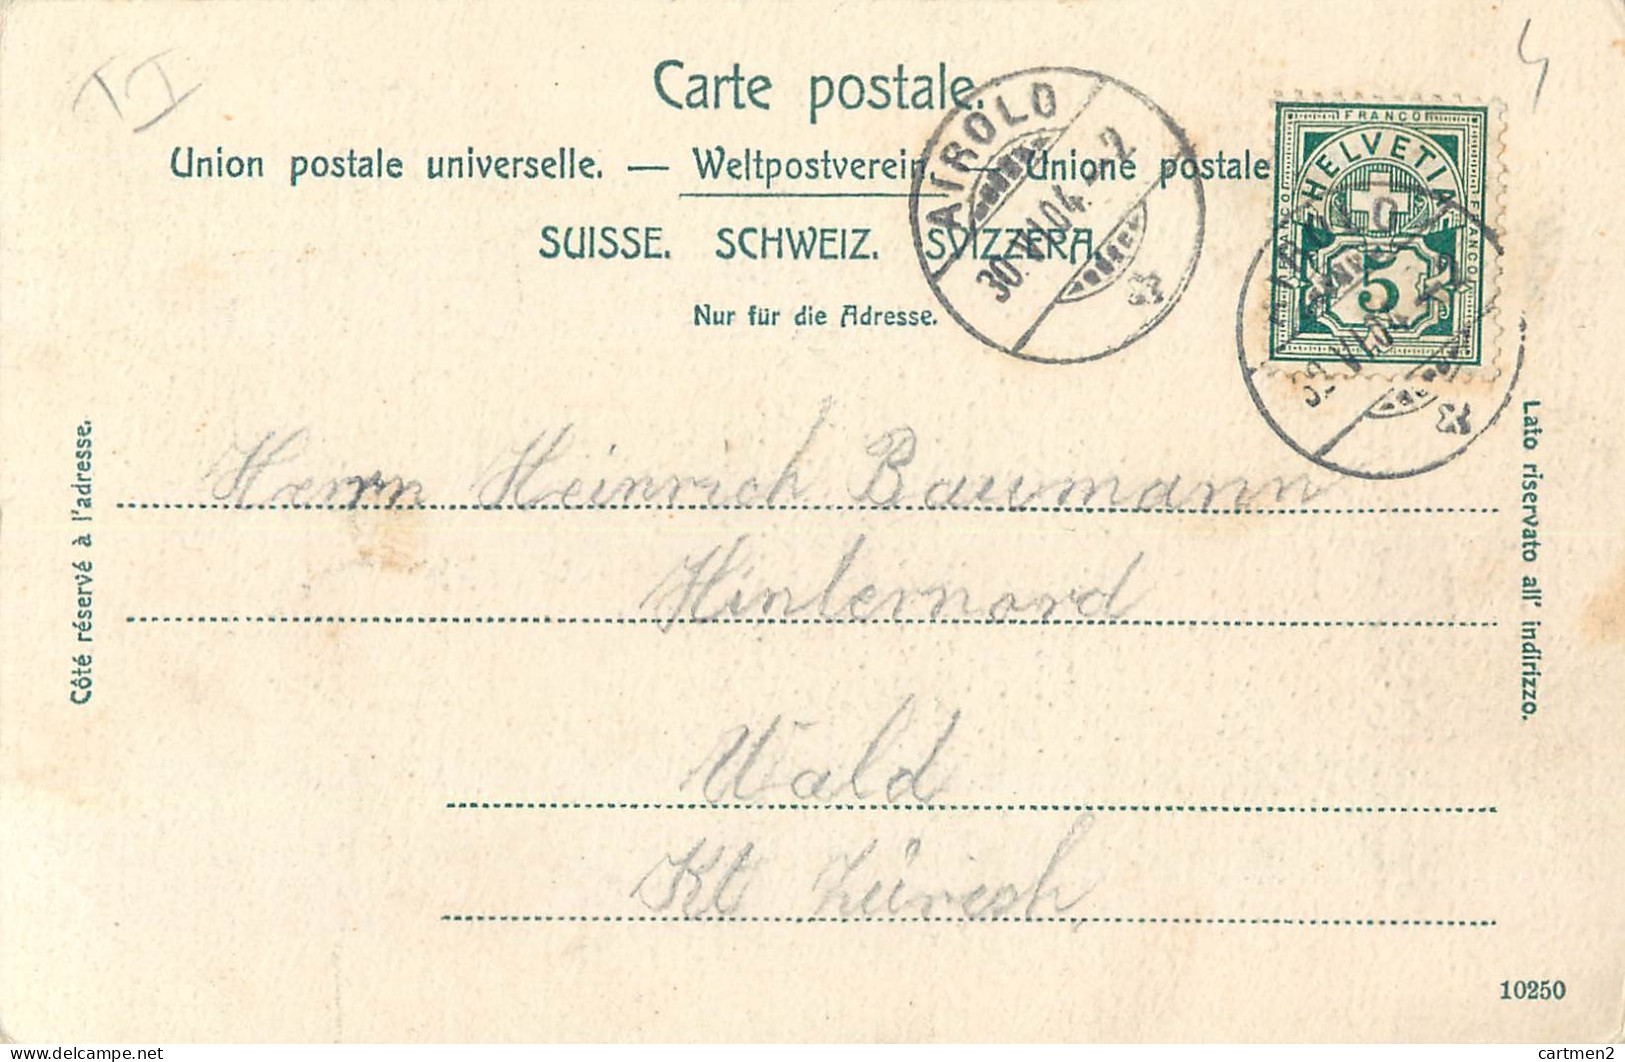 TI
Carte postale.
Union postale universelle. — Weltpostverein — Unione postale
SUISSE. SCHWEIZ. SVIZZERA.
Nur für die Adresse.
AIROLO
30.VI.04.-2
FRANCO
FRANCO
FRANCO
HELVETIA
5
VI.04
Côté réservé à l'adresse.
Lato riservato all' indirizzo.
Herrn Heinrich Baumann
Hinternord
Wald
Kt Zürich
10250
cartmen2